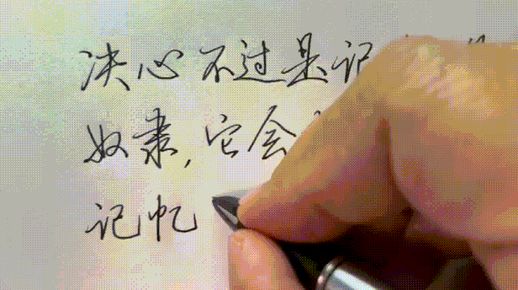 决心不过是记
奴隶,它会
记忆